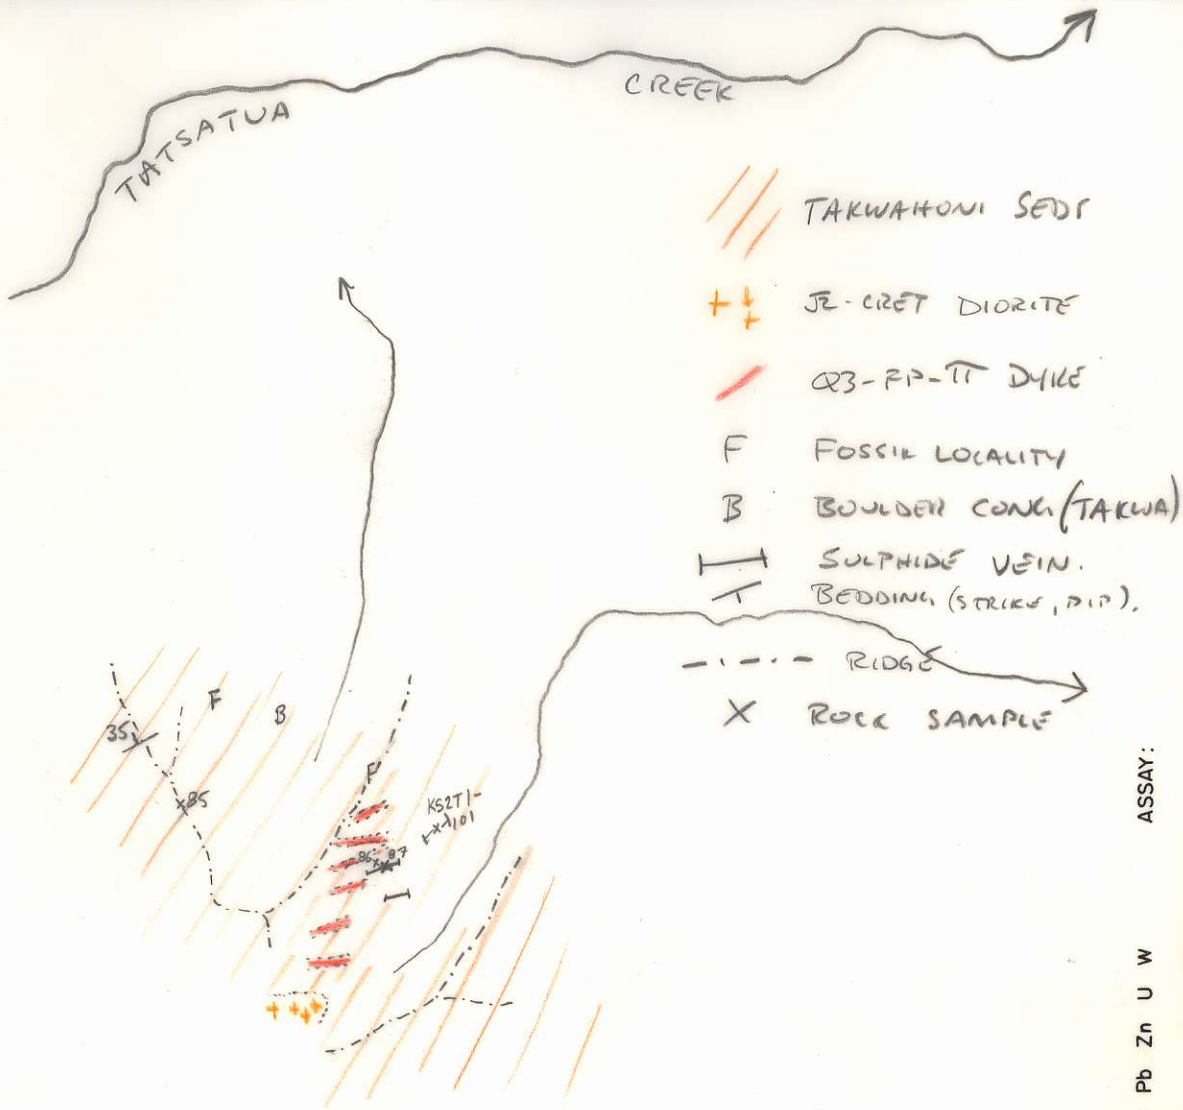 CREEK
TATSATUA
TAKWAHONI SEDS
JR-CRET DIORITE
QZ-FP-π DYKE
F FOSSIL LOCALITY
B BOULDER CONG. (TAKWA)
SULPHIDE VEIN.
BEDDING (STRIKE, DIP).
RIDGE
X ROCK SAMPLE
F
B
35
F
85
KS2T1-
101
86 87
ASSAY:
Pb Zn U W